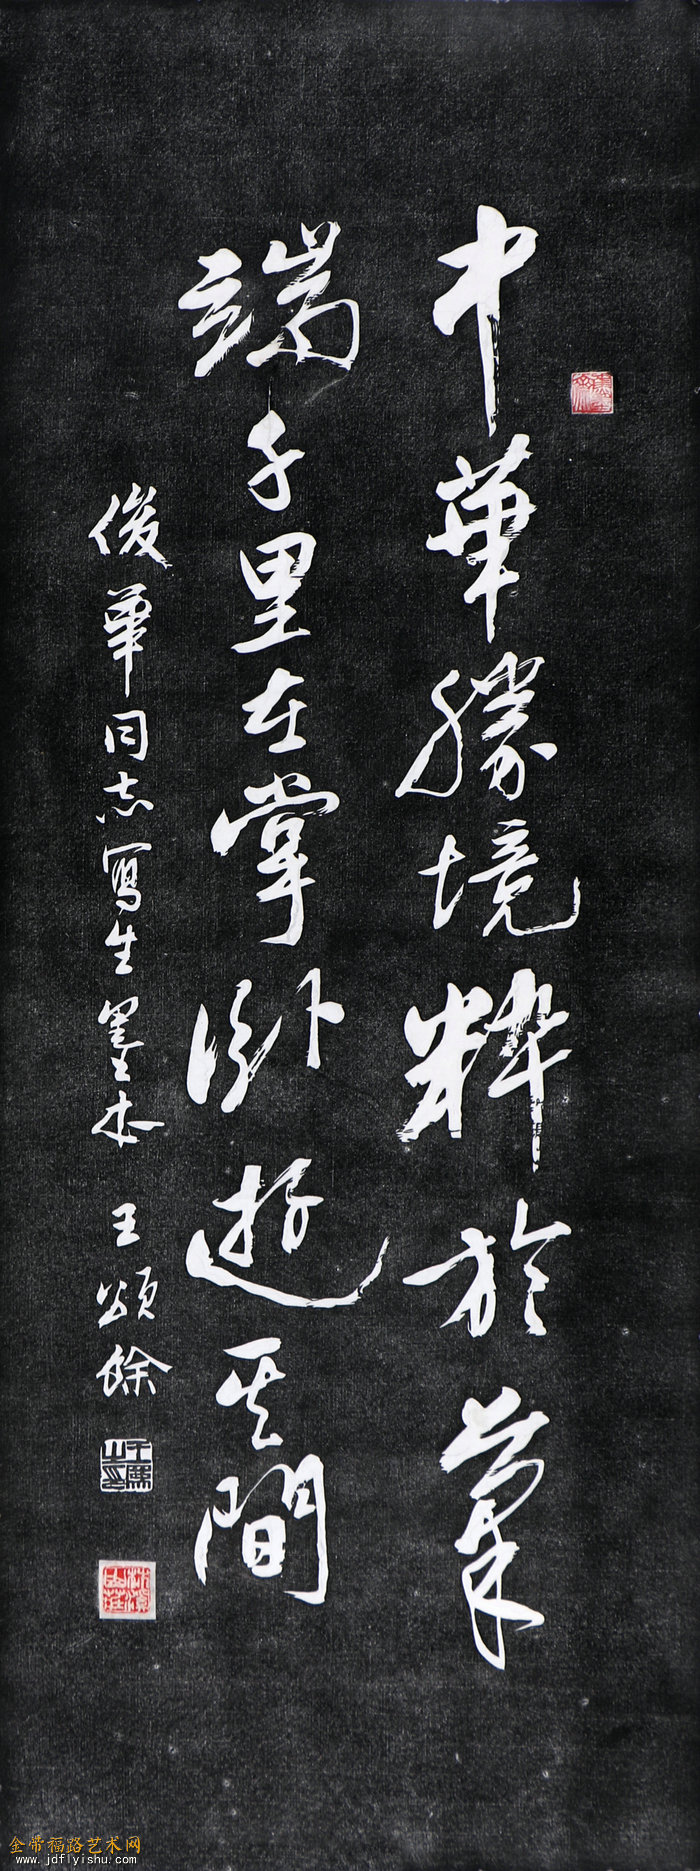 中華勝境粹於筆
端千里在掌臥遊其間
俊華同志寫生墨本 王頌餘
金带福路艺术网
www.jdflyishu.com